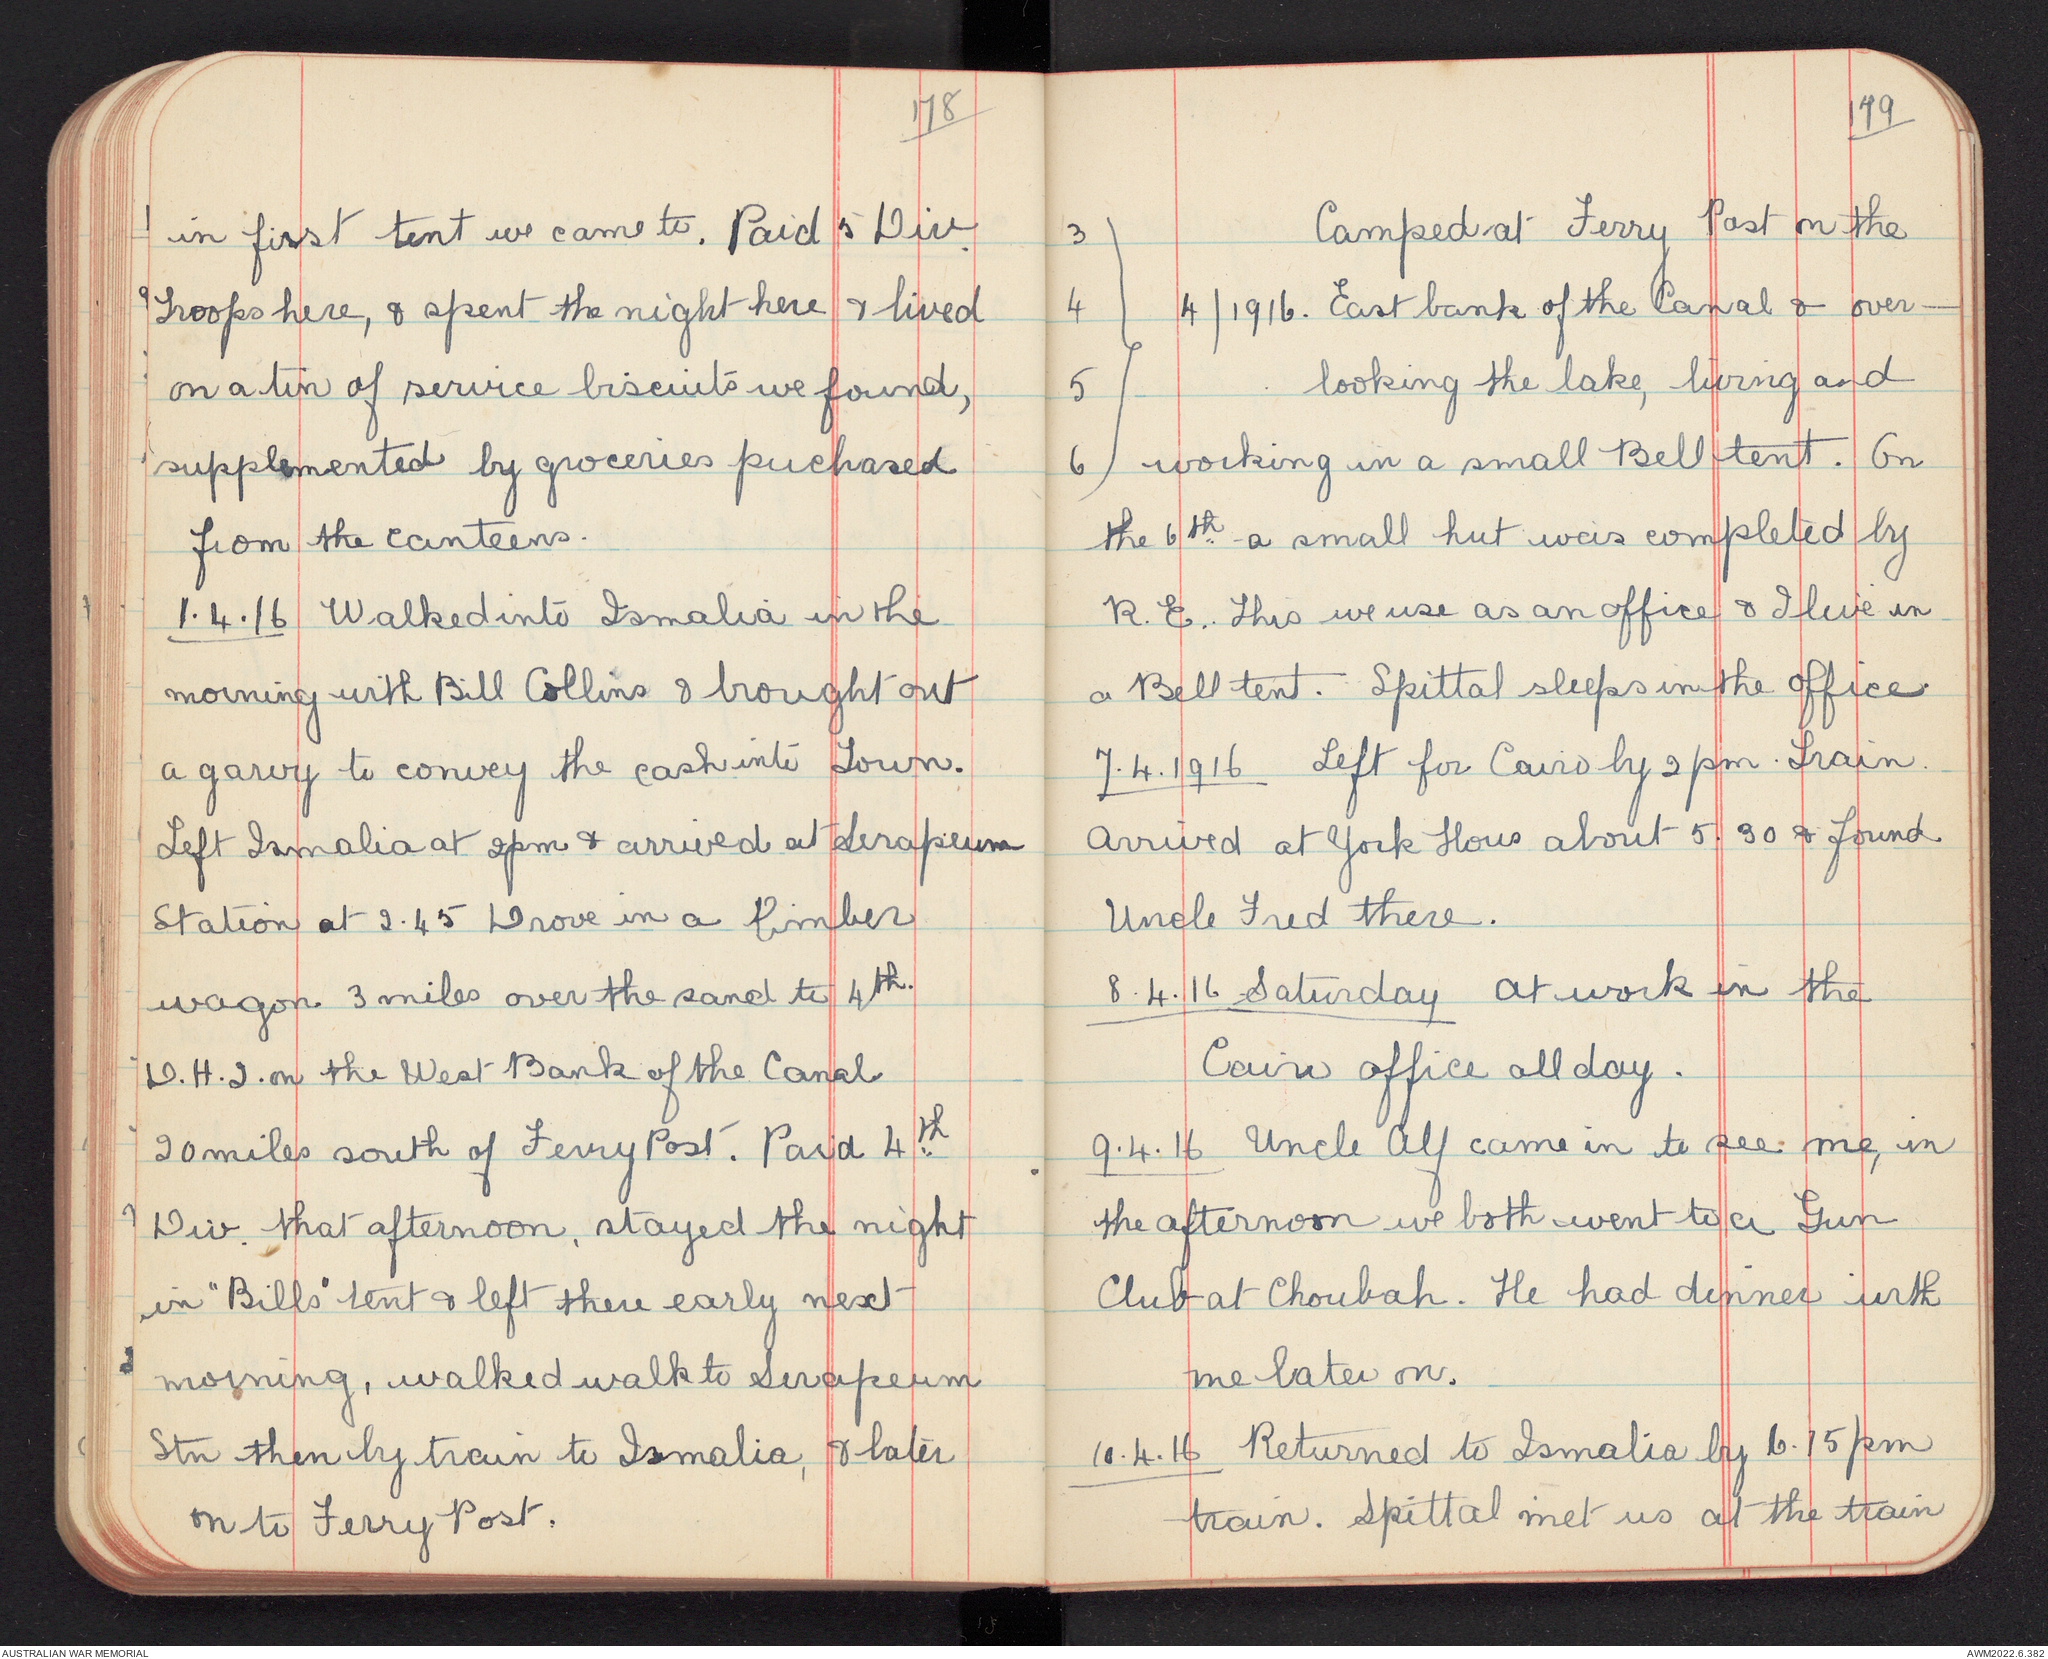 178
in first tent we came to. Paid 5 Div.
Troops here, & spent the night here & lived
on a tin of service biscuits we found,
supplemented by groceries puchased
from the canteens.
1.4.16 Walked into Ismalia in the
morning with Bill Collins & brought out
a garvy to convey the cash into Town.
Left Ismalia at 2pm & arrived at Serapeum
Station at 2.45 Drove in a Limber
wagon 3 miles over the sand to 4th.
D.H.Q. on the West Bank of the Canal
20 miles south of Ferry Post. Paid 4th
Div. that afternoon, stayed the night
in "Bills" tent & left there early next
morning, walked walk to Serapeum
Stn then by train to Ismalia, & later
on to Ferry Post.
179
3 Camped at Ferry Post on the
4 4/1916. East bank of the Canal & over-
5 looking the lake, living and
6 working in a small Bell tent. On
the 6th a small hut was completed by
R.E. This we use as an office & I live in
a Bell tent. Spittal sleeps in the office.
7.4.1916 Left for Cairo by 2pm. Train.
Arrived at York Hous about 5.30 & found
Uncle Fred there.
8.4.16 Saturday At work in the
Cairo office all day.
9.4.16 Uncle Alf came in to see me, in
the afternoon we both went to a Gun
Club at Choubah. He had dinner with
me later on.
10.4.16 Returned to Ismalia by 6.15pm
train. Spittal met us at the train
AUSTRALIAN WAR MEMORIAL
AWM2022.6.382